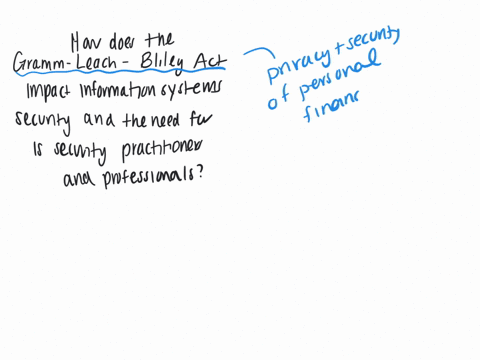 How does the
Gramm-Leach-Bliley Act
impact information systems
security and the need for
is security practitioners
and professionals?
privacy + security
of personal
financ